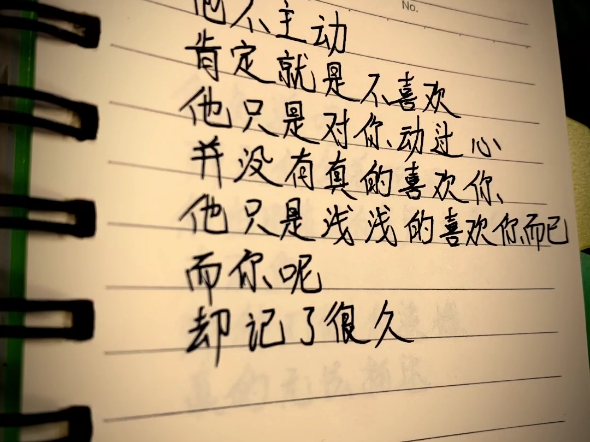 No.
他不主动
肯定就是不喜欢
他只是对你动过心
并没有真的喜欢你
他只是浅浅的喜欢你而已
而你呢
却记了很久